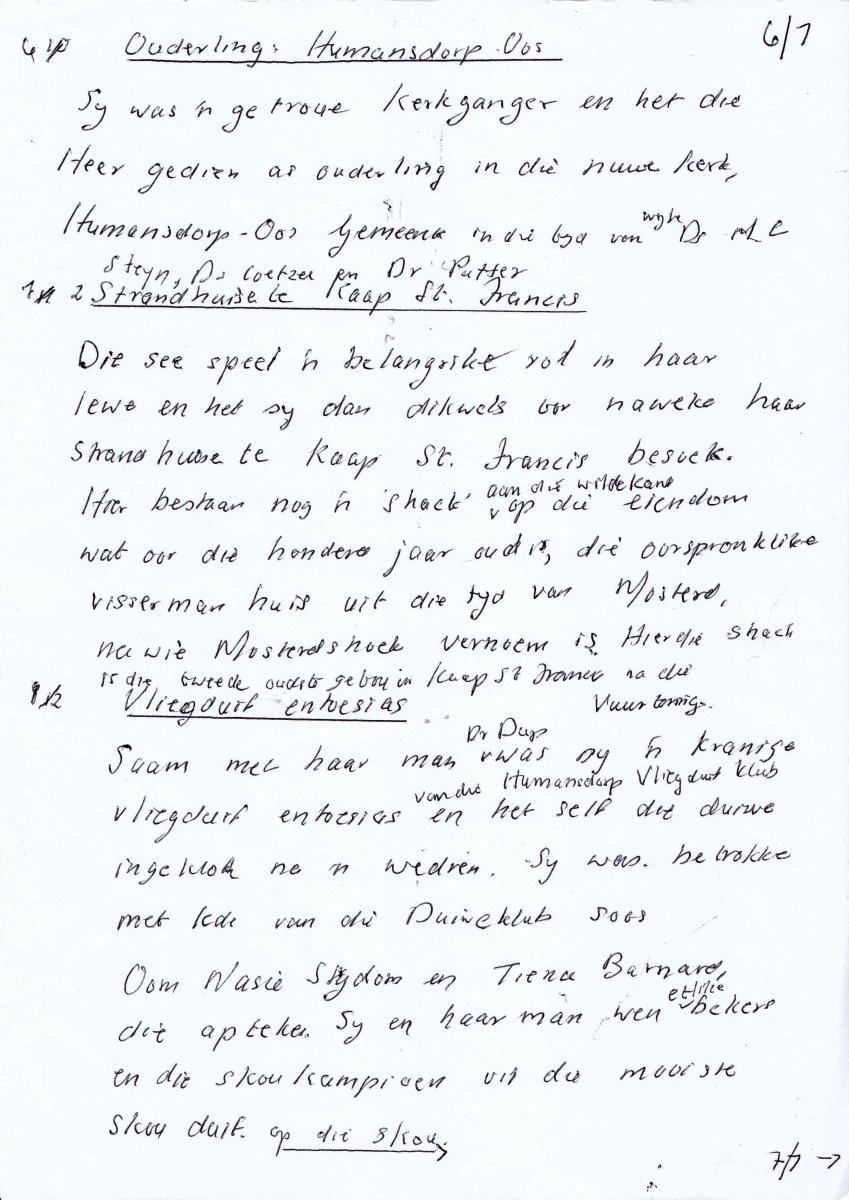 6/7
Ouderling: Humansdorp-Oos
Sy was 'n getroue kerkganger en het die
Heer gedien as ouderling in die nuwe kerk,
Humansdorp-Oos Gemeente in die tyd van wyle Ds
Steyn, Ds Coetzee en Dr Putter
2 Strandhuise te Kaap St. Francis
Die see speel 'n belangrike rol in haar
lewe en het sy dan dikwels oor naweke haar
Strandhuise te Kaap St. Francis besoek.
Hier bestaan nog 'n 'shack' aan die wildekant op die eiendom
wat oor die honderd jaar oud is, die oorspronklike
visserman huis uit die tyd van Mosterd,
na wie Mosterdshoek vernoem is. Hierdie shack
is die tweede oudste gebou in Kaap St Francis na die
Vuurtoring.
Vliegduif entoesias
Saam met haar man Dr Dup was sy 'n kranige
vliegduif entoesias van die Humansdorp Vliegduif klub en het self die duiwe
ingeklok na 'n wedren. Sy was betrokke
met lede van die Duiweklub soos
Oom Nasie Strydom en Tiena Barnard,
die apteker. Sy en haar man wen etlike bekers
en die skoukampioen vir die mooiste
Skou duif. op die skou.
7/7 →